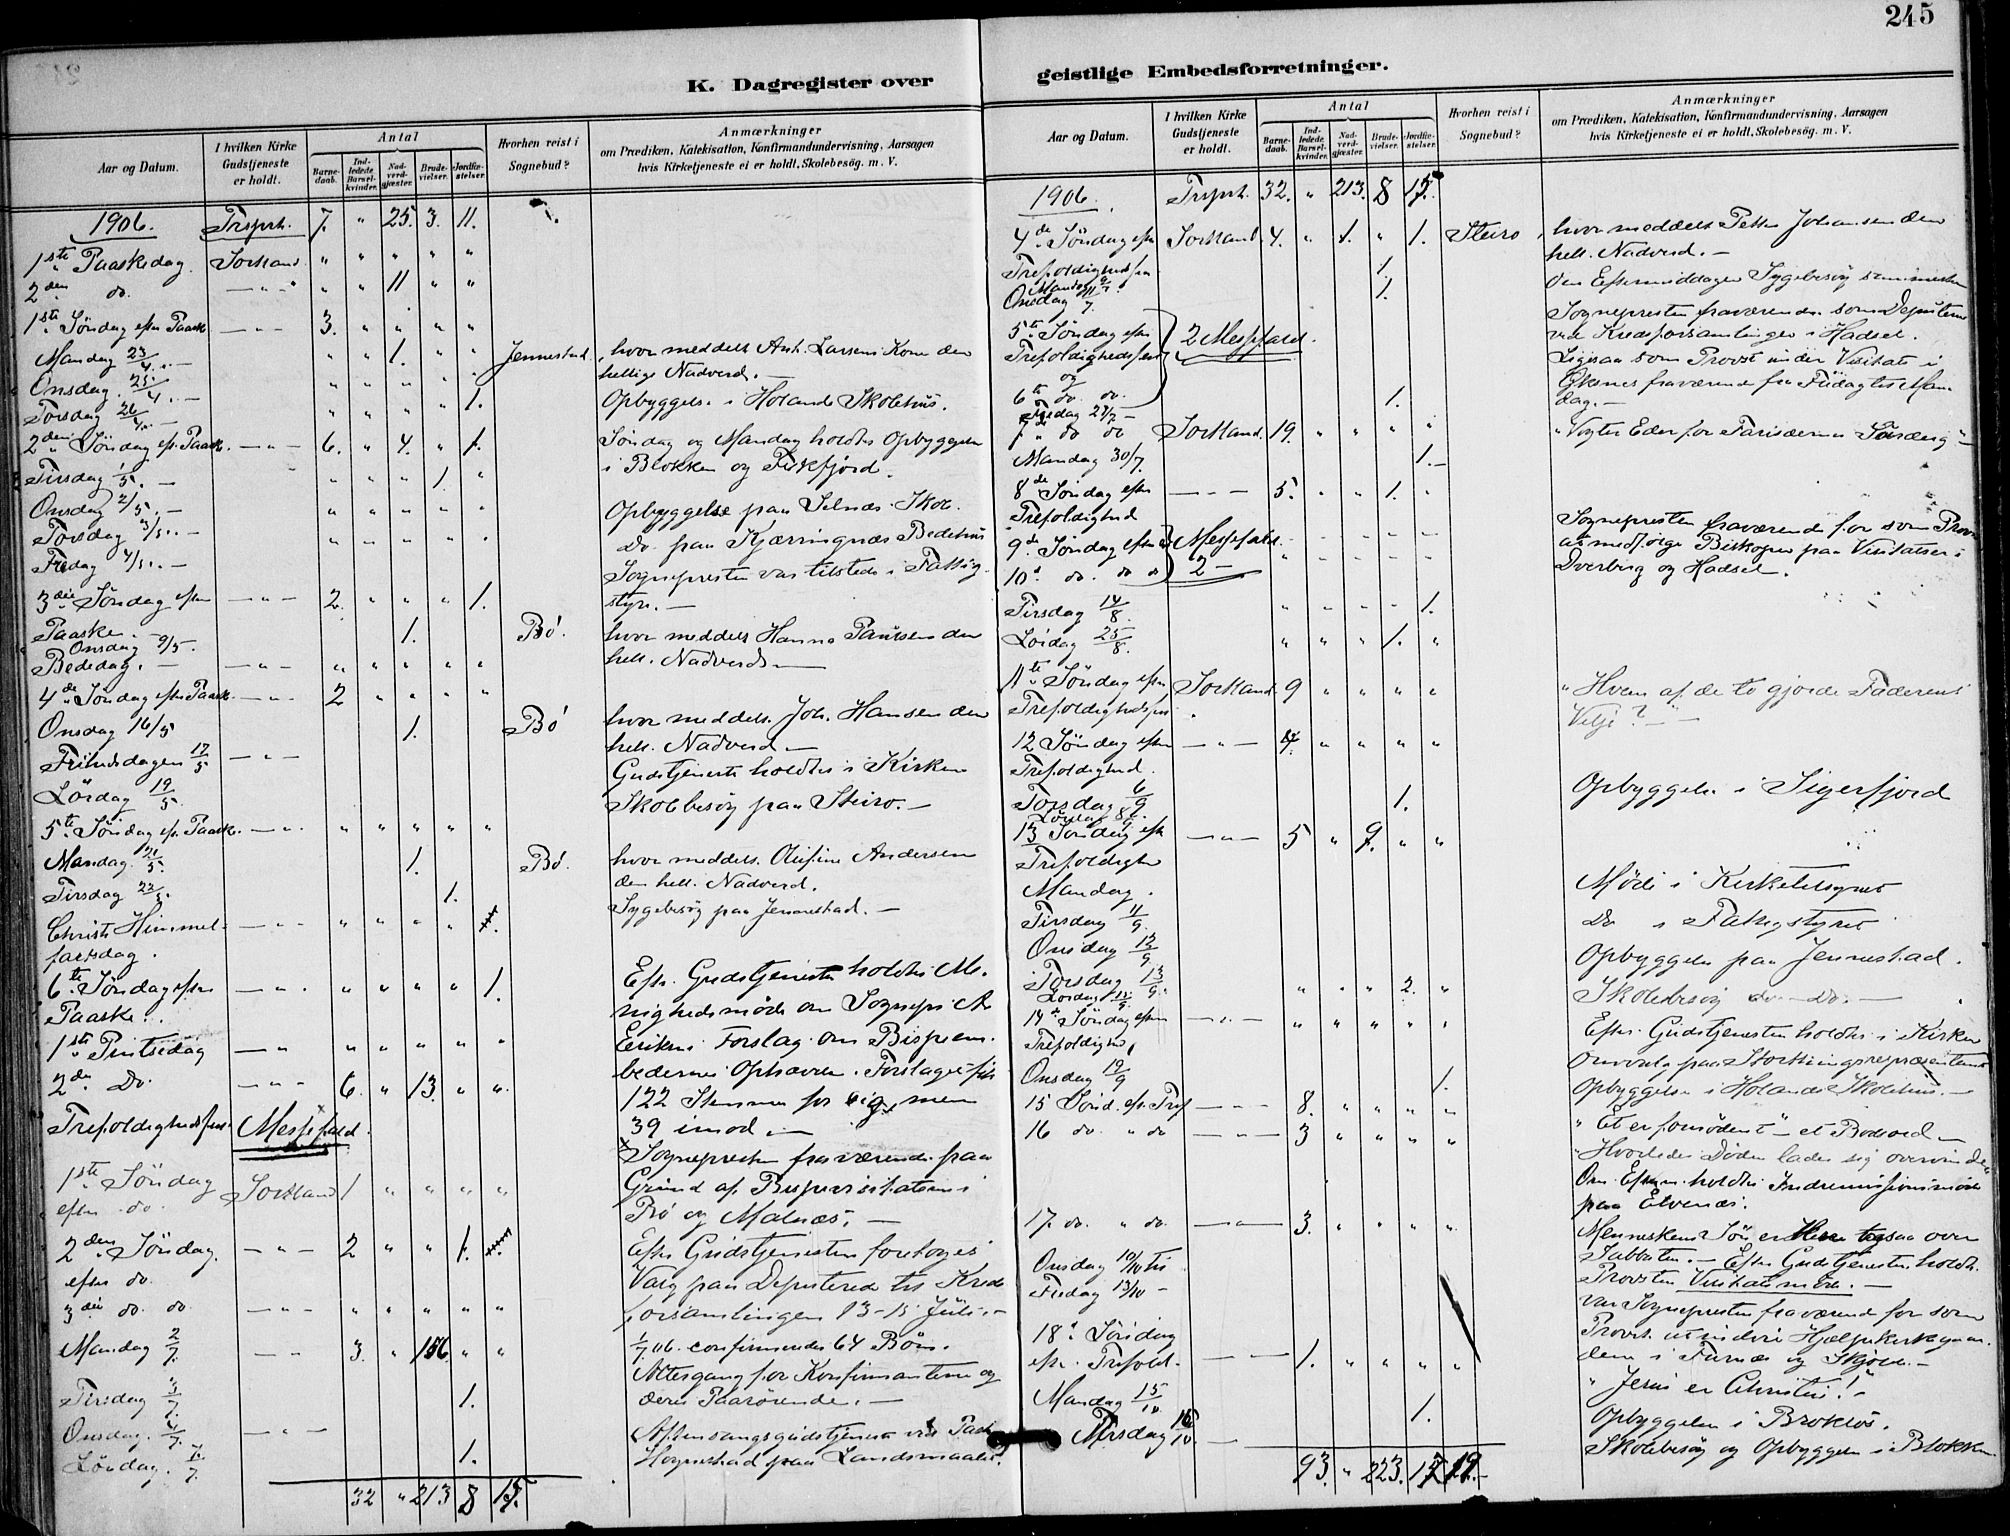 245
K. Dagregister over
Aar og Datum.
I hvilken Kirke Gudstjeneste er holdt.
Antal
Barnedaab.
Indledede Barselkvinder.
Nadverdgjæster.
Brudevielser.
Jordfæstelser.
Hvorhen reist i Sognebud?
Anmærkninger
om Prædiken, Katekisation, Konfirmandundervisning, Aarsagen
hvis Kirketjeneste ei er holdt, Skolebesög. m. V.
1906. Trsprt. 7. " 25. 3. 11.
1ste Paaskedag Sortland " " " " "
2den do. — " — " " 11 " "
1ste Søndag efter Paaske — " — 3. " " " "
Mandag 23/4. — " " 1. " " Jennestad, hvor meddelt Ant. Larsens Kone den
hellige Nadverd. —
Onsdag 25/4. — " " " " "
Torsdag 26/4. — " " " " 1. Opbyggelse i Holands Skolehus.
2den Søndag ef. Paaske. — " — 6. " 4. " 1. Søndag og Mandag holdtes Opbyggelse
i Blokken og
Tirsdag 1/5. — " " " 1. "
Onsdag 2/5. — " " " " " Opbyggelse paa Selnæs Skole.
Torsdag 3/5. — " " " " " Do paa Kjærringnæs Bedehus
Fredag 4/5. — Sognepresten var tilstede i Fattig-
styre. —
3die Søndag efter — " — 2. " " " 1.
Paaske.
Onsdag 9/5. 1. Bø. hvor meddelt Hanna Paulsen den
hell. Nadverd. —
Bededag. — — " — " " " " "
4de Søndag efter Paaske — " — 2 " " " "
Onsdag 16/5 1. Bø hvor meddelt Joh. Hansen den
hell. Nadverd —
Frihedsdagen 17/5 — " — Gudstjeneste holdtes i Kirken
Lørdag 19/5. Skolebesøg paa Steiro. —
5te Søndag ef. Paaske. — " — " " " " "
Mandag 21/5. 1. Bø. hvor meddelt Olufine Andersen
den hell. Nadverd.
Tirsdag 22/5. 1. Sygebesøg paa Jennestad. —
Christi Himmel- — " — " " " "
fartsdag.
6te Søndag efter — " — " " " " 1. Efter Gudstjenesten holdtes Me-
Paaske. nighedsmøde om Sognepr.
1ste Pintsedag — " " " " " " Eriksens Forslag om Bispeem-
2den Do. — " — 6. " 13. " " bedernes Ophævelse. Forslaget fik
122 Stemmer for sig, men
39 imod. —
Trefoldighedsfest Messefald. Sognepresten fraværende paa
Grund af Bispevisitatsen i
Bø og Malnæs. —
1ste Søndag Sortland 1 " " " "
efter do.
2den Søndag — " — 2 " " 1. Efter Gudstjenesten foretoges
efter do. Valg paa Deputerede til Kreds-
3die do. do. — " — " " " " " forsamlingen 13-15 Juli. —
Mandag 2/7. — " — 3. " 156. " " 1/7 06. confirmeredes 64 Børn.
Altergang for Konfirmanterne og
Tirsdag 3/7. 1. deres Paarørende. —
Onsdag 4/7. — " — Aftensangsgudstjeneste ved
Lördag. 7/7. 1. Hognestad paa Landsmaalet.
32 " 213 8 15.
geistlige Embedsforretninger.
Aar og Datum.
I hvilken Kirke Gudstjeneste er holdt.
Antal
Barnedaab.
Indledede Barselkvinder.
Nadverdgjæster.
Brudevielser.
Jordfæstelser.
Hvorhen reist i Sognebud?
Anmærkninger
om Prædiken, Katekisation, Konfirmandundervisning, Aarsagen
hvis Kirketjeneste ei er holdt, Skolebesög. m. V.
1906. Trsprt. 32. " 213. 8 15.
4de Søndag efter Sortland 4. " 1. " 1. Steiro, hvor meddelt Petter Johansen den
hell. Nadverd. —
Trefoldighedsfest
Mandag 9/7. 1. Om Eftermiddagen Sygebesøg
Onsdag 11/7. 1.
5te Søndag efter 2 Messefald. Sognepresten fraværende som Deputeret
Trefoldighedsfest ved Kredsforsamlingen i Hadsel.
og Ligesaa som Provst under Visitats i
6te do. do. Øksnes fraværende fra Fredag til Man-
dag. —
Fredag 27/7 — 1.
7de do do Sortland. 19. " " " " "Vogter Eder for Farisæernes Surdeig" —
Mandag 30/7. 1. —
8de Søndag efter — " — 5. " " 1. "
Trefoldighed
9de Søndag efter Messefald. Sognepresten fraværende for som Provst
10de do. do do 2 — at medfølge Biskopen paa Visitatsen i
Dverberg og Hadsel.
Tirsdag 14/8. " " " " 1.
Lördag 25/8. " " " 1. "
11te Søndag efter Sortland. 9 " " " " "Hvem af de to gjorde Faderens
Trefoldighedsfest Vilje?" —
12 Søndag efter — " — 4. " " " "
Trefoldighed.
Torsdag 6/9 1. Opbyggelse i Sigerfjord
Lördag 8/9.
13 Søndag eft — " — 5 " 9. " "
Trefoldighe
Mandag. Møde i Kirketilsynet
Tirsdag 11/9. Do i Fattigstyret
Onsdag 12/9 Opbyggelse paa Jennestad.
Torsdag 13/9. Skolebesøg do. — Do. —
Lördag 15/9. " " " 2. "
14de Søndag efter — " — " " " " " Efter Gudstjenesten holdtes i Kirken
Trefoldighed Omvalg paa Stortingsrepræsentant
Onsdag 19/9 1. Opbyggelse i Holands Skolehus. —
15 Sønd. ef. Tref — " — 8. " " " " "Et er fornødent" — et Bedsord —
16 do. " do — " — 3 " " " " "Hvorledes Døden lader sig overvinde"
Om Efterm. holdtes Indremissionsmøde
paa Elvenæs.
17. do. " do. — " — 3. " " " " Menneskens Søn er Herre ogsaa over
Sabbaten. — Efter Gudstjenesten holdt
Provsten Visitatsmøde. —
Onsdag 10/10 til Var Sognepresten fraværende for som
Fredag 13/10 — Provst at indvie Hjælpekirkegaar-
dene i og
18de Søndag
efter Trefold. — — 1. " " " " "Jesus er Christus!"
Mandag 15/10 1. Opbyggelse i Brokløs.
Tirsdag 16/10. — Skolebesøg og Opbyggelse i Blokken
93. " 223. 17. 19. —